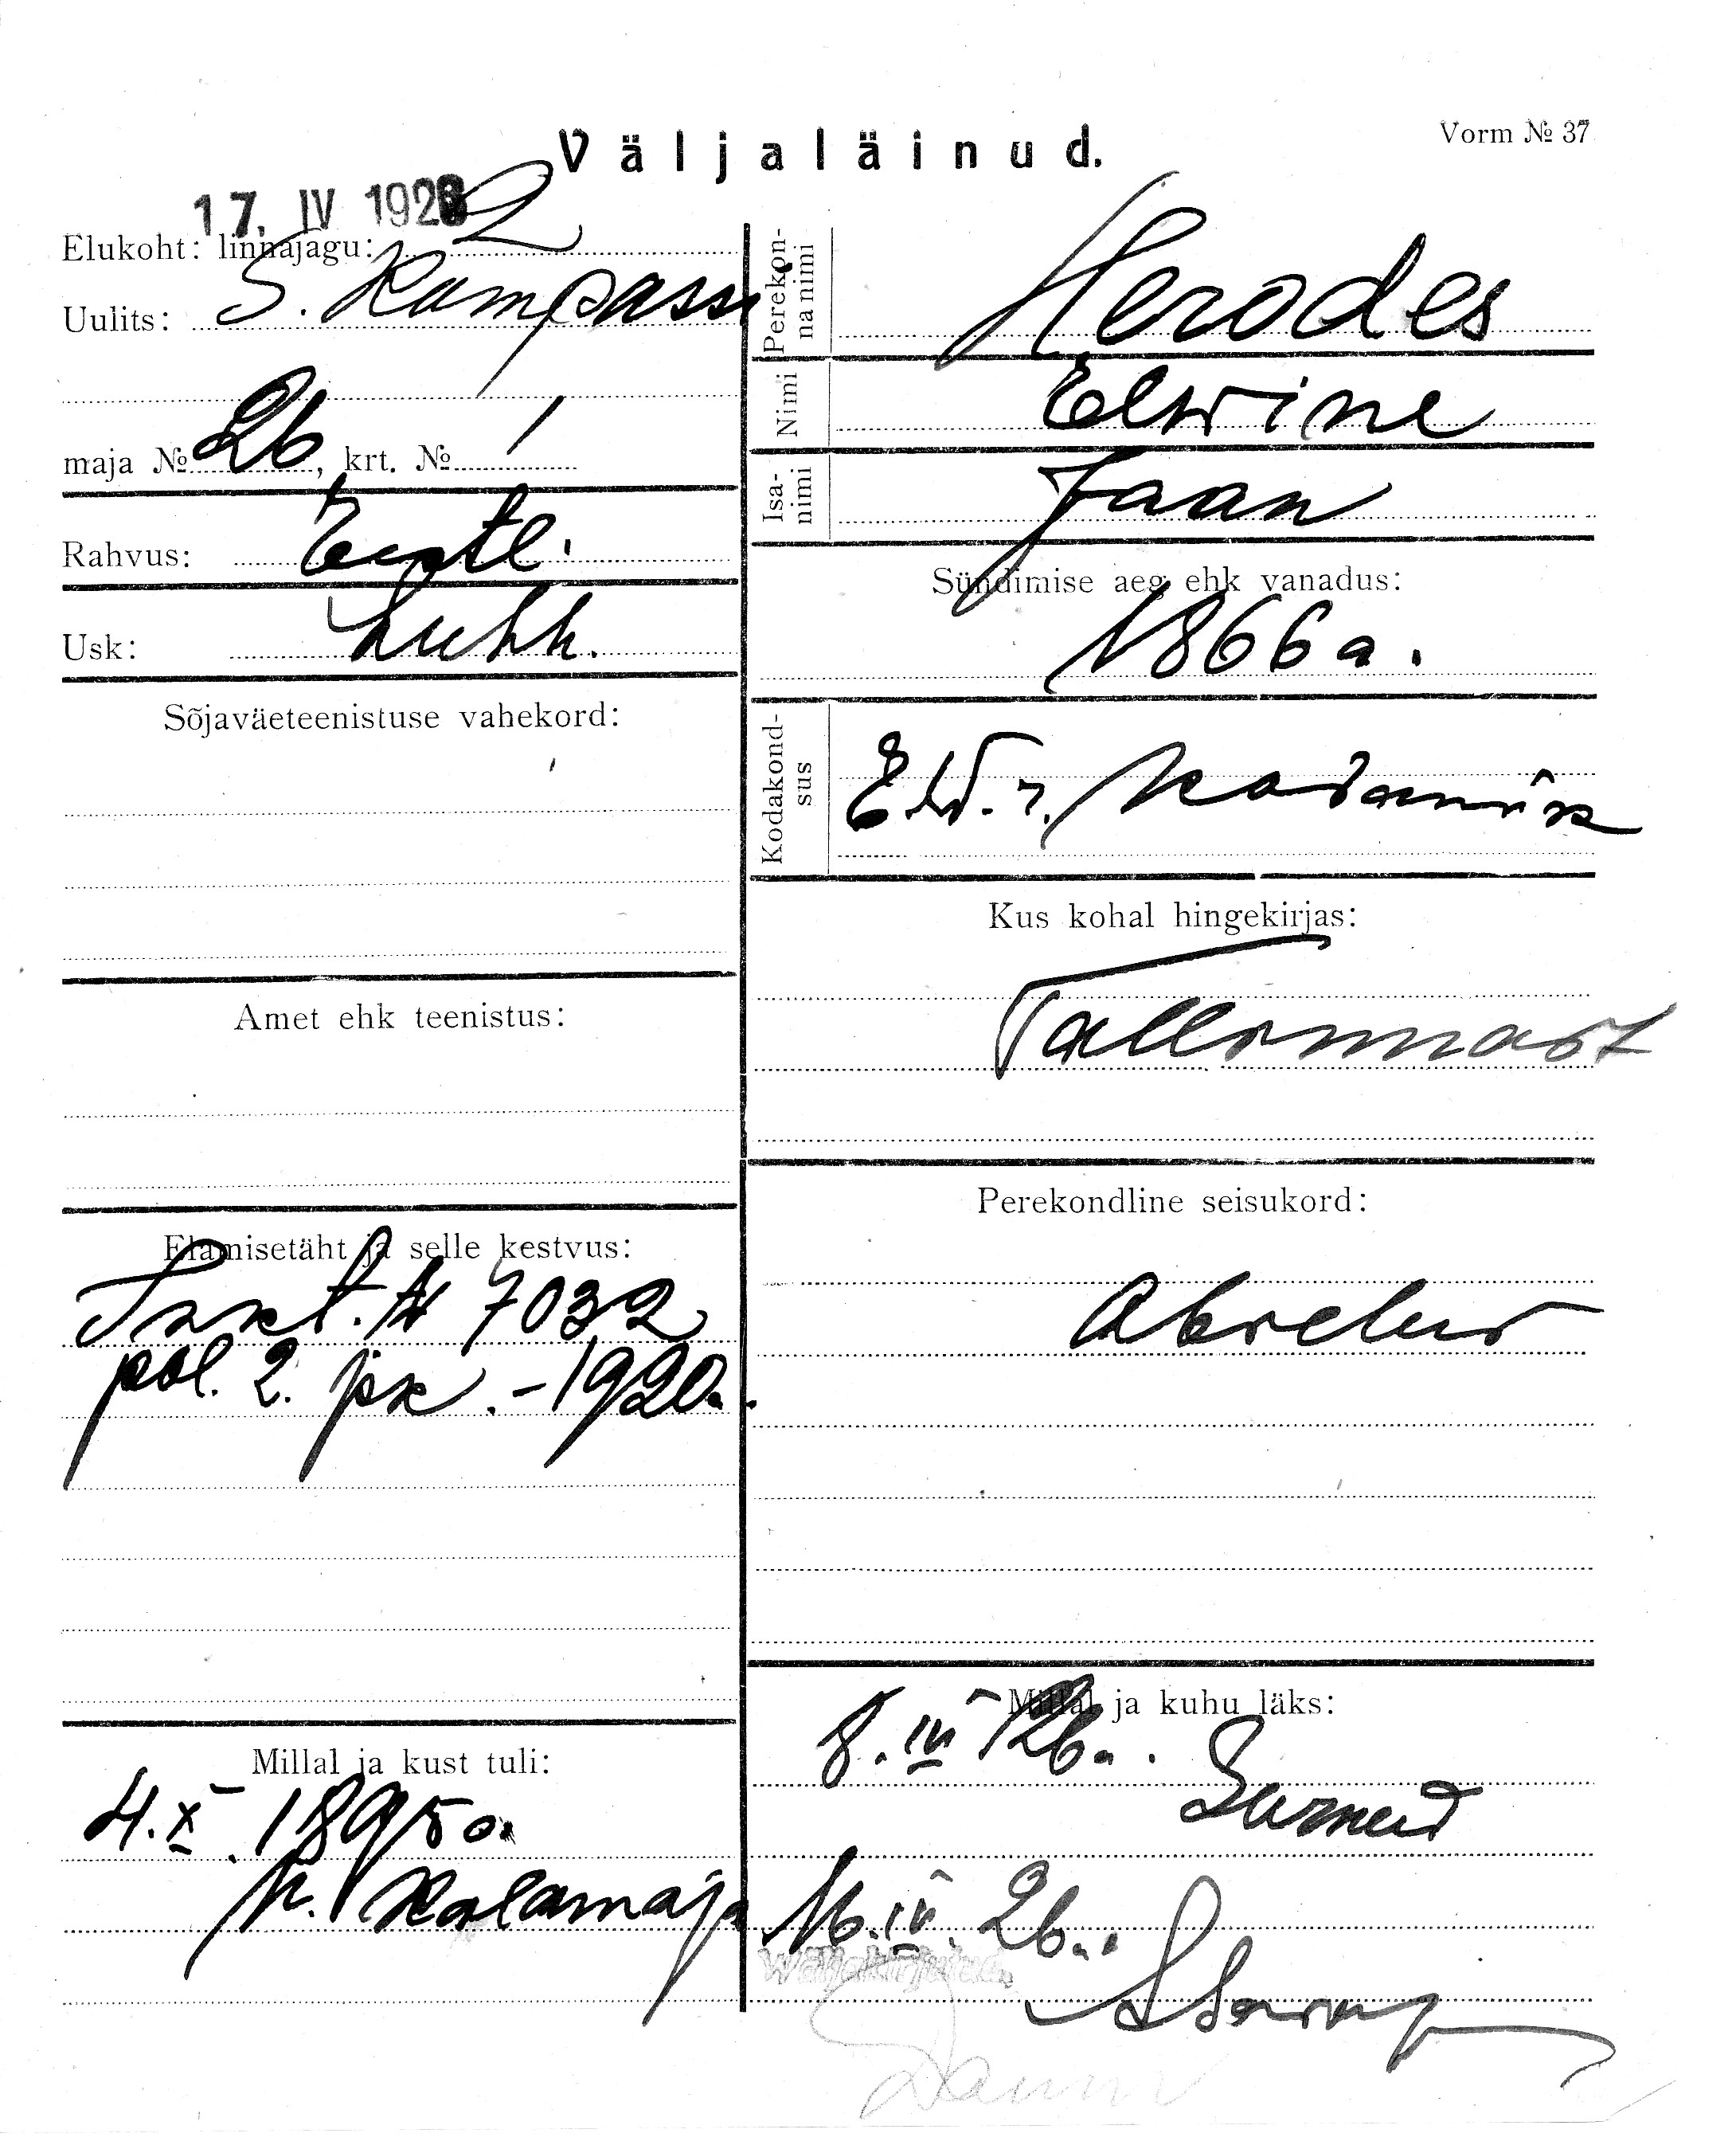 Väljaläinud.
Vorm № 37
17. IV 1928
Elukoht: linnajagu: 2
Uulits: S. Kompassi
maja № 26, krt. № 1
Rahvus: Eestl.
Usk: Luth.
Sõjaväeteenistuse vahekord:
Amet ehk teenistus:
Elamisetäht ja selle kestvus:
Tunt. № 7032
pol. 2. jsk. - 1920a.
Millal ja kust tuli:
4. X. 1895 a.
K. Kalamaja
Perekon-
nanimi
Herodes
Nimi Elwine
Isa-
nimi
Jaan
Sündimise aeg ehk vanadus:
1866 a.
Kodakond-
sus
E.W. kodanik
Kus kohal hingekirjas:
Tallinnast
Perekondline seisukord:
Abielus
Millal ja kuhu läks:
8. IV 26a.
Surnud
16. IV. 26a.
Wäljakirjutud.